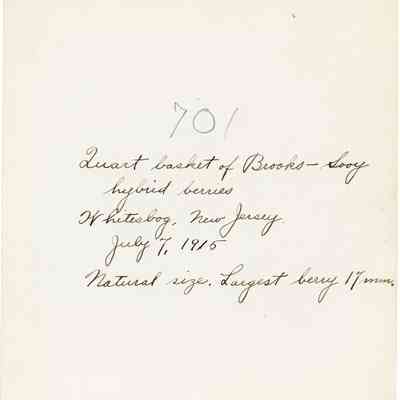 701
Quart basket of Brooks - Sooy
hybrid berries
Whitesbog, New Jersey
July 7, 1915
Natural size. Largest berry 17 mm.